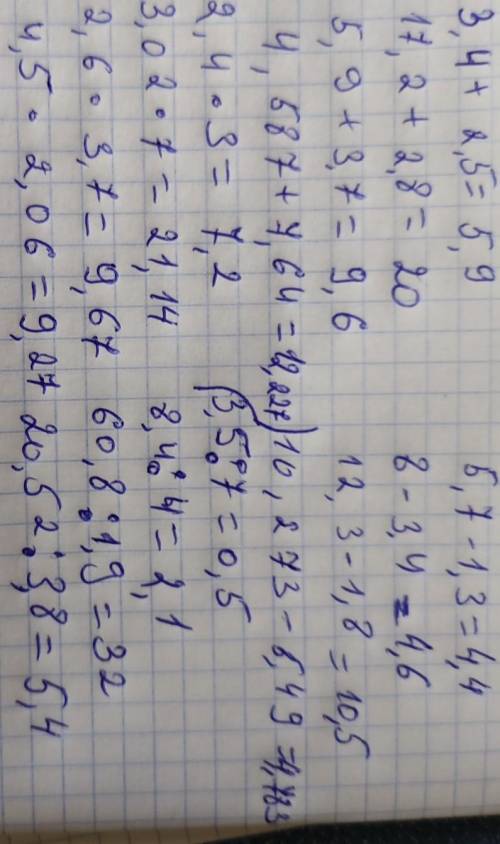 3,4 + 2,5 = 5,9 5,7 - 1,3 = 4,4
17,2 + 2,8 = 20 8 - 3,4 = 4,6
5,9 + 3,7 = 9,6 12,3 - 1,8 = 10,5
4,587 + 7,64 = 12,227) 10,273 - 8,49 = 1,783
2,4 · 3 = 7,2 (3,5 : 7 = 0,5
3,02 · 7 = 21,14 8,4 : 4 = 2,1
2,6 · 3,7 = 9,67 60,8 : 1,9 = 32
4,5 · 2,06 = 9,27 20,52 : 3,8 = 5,4